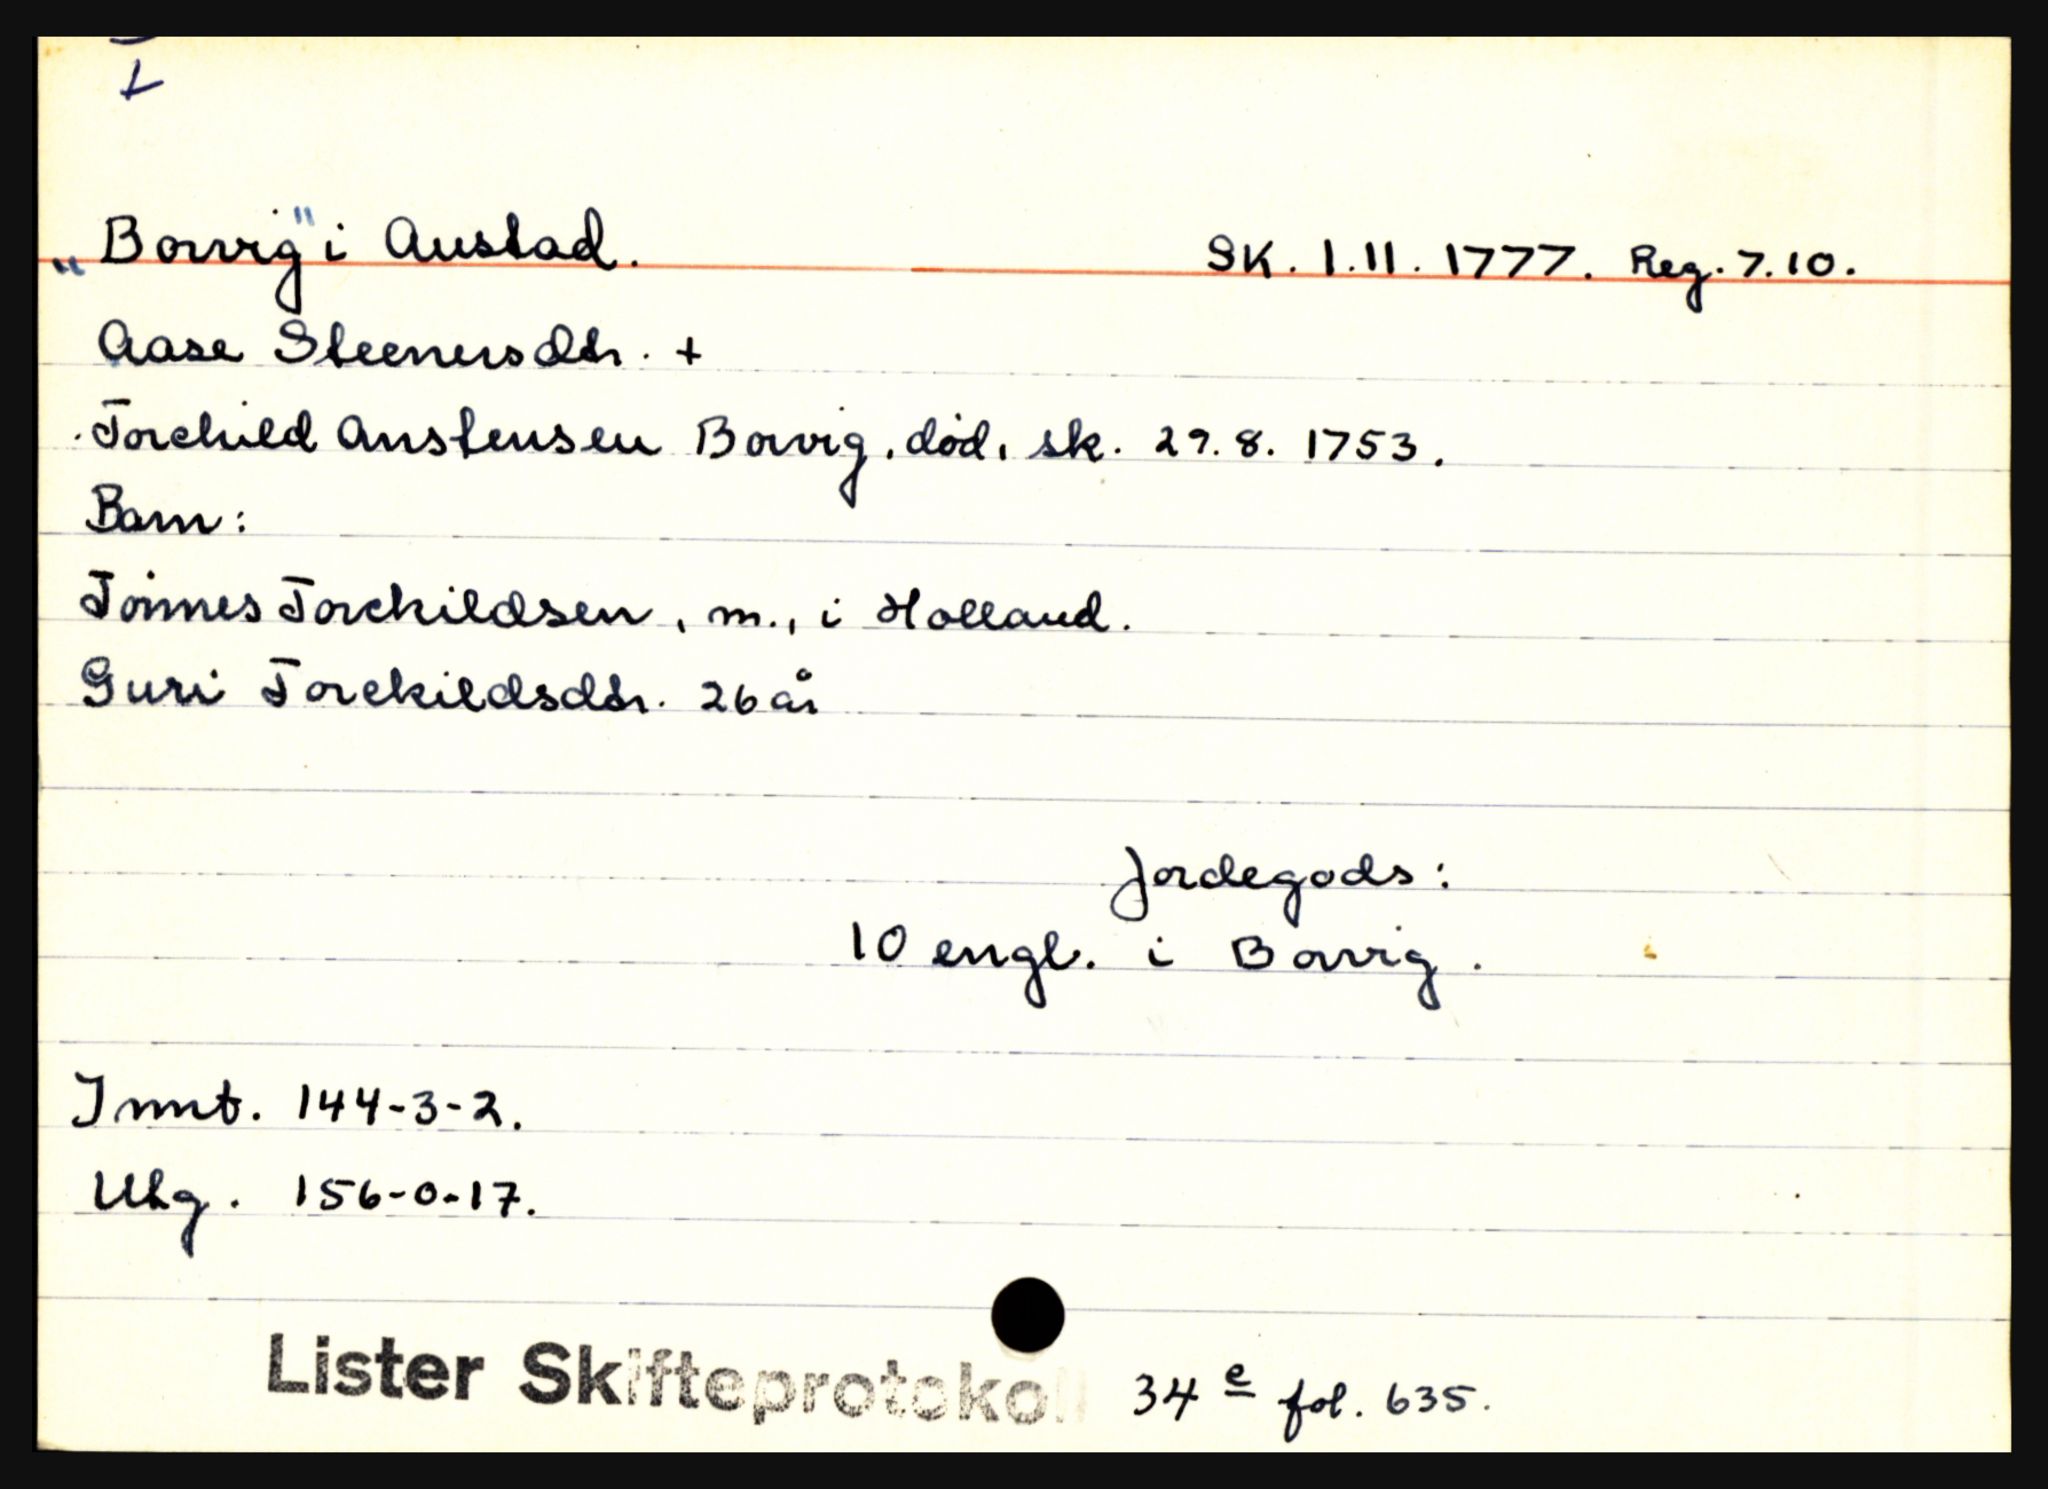 L
„Borvig" i Austad. SK. 1.11.1777. Reg. 7.10.
Aase Steenersdtr. +
Torchild Anstensen Borvig, død, sk. 29.8.1753.
Barn:
Tönnes Torchildsen, m., i Holland.
Guri Torchildsdtr. 26 år
Jordegods:
10 engl. i Borvig.
Innt. 144-3-2.
Utg. 156-0-17.
Lister Skifteprotokoll 34 e fol. 635.